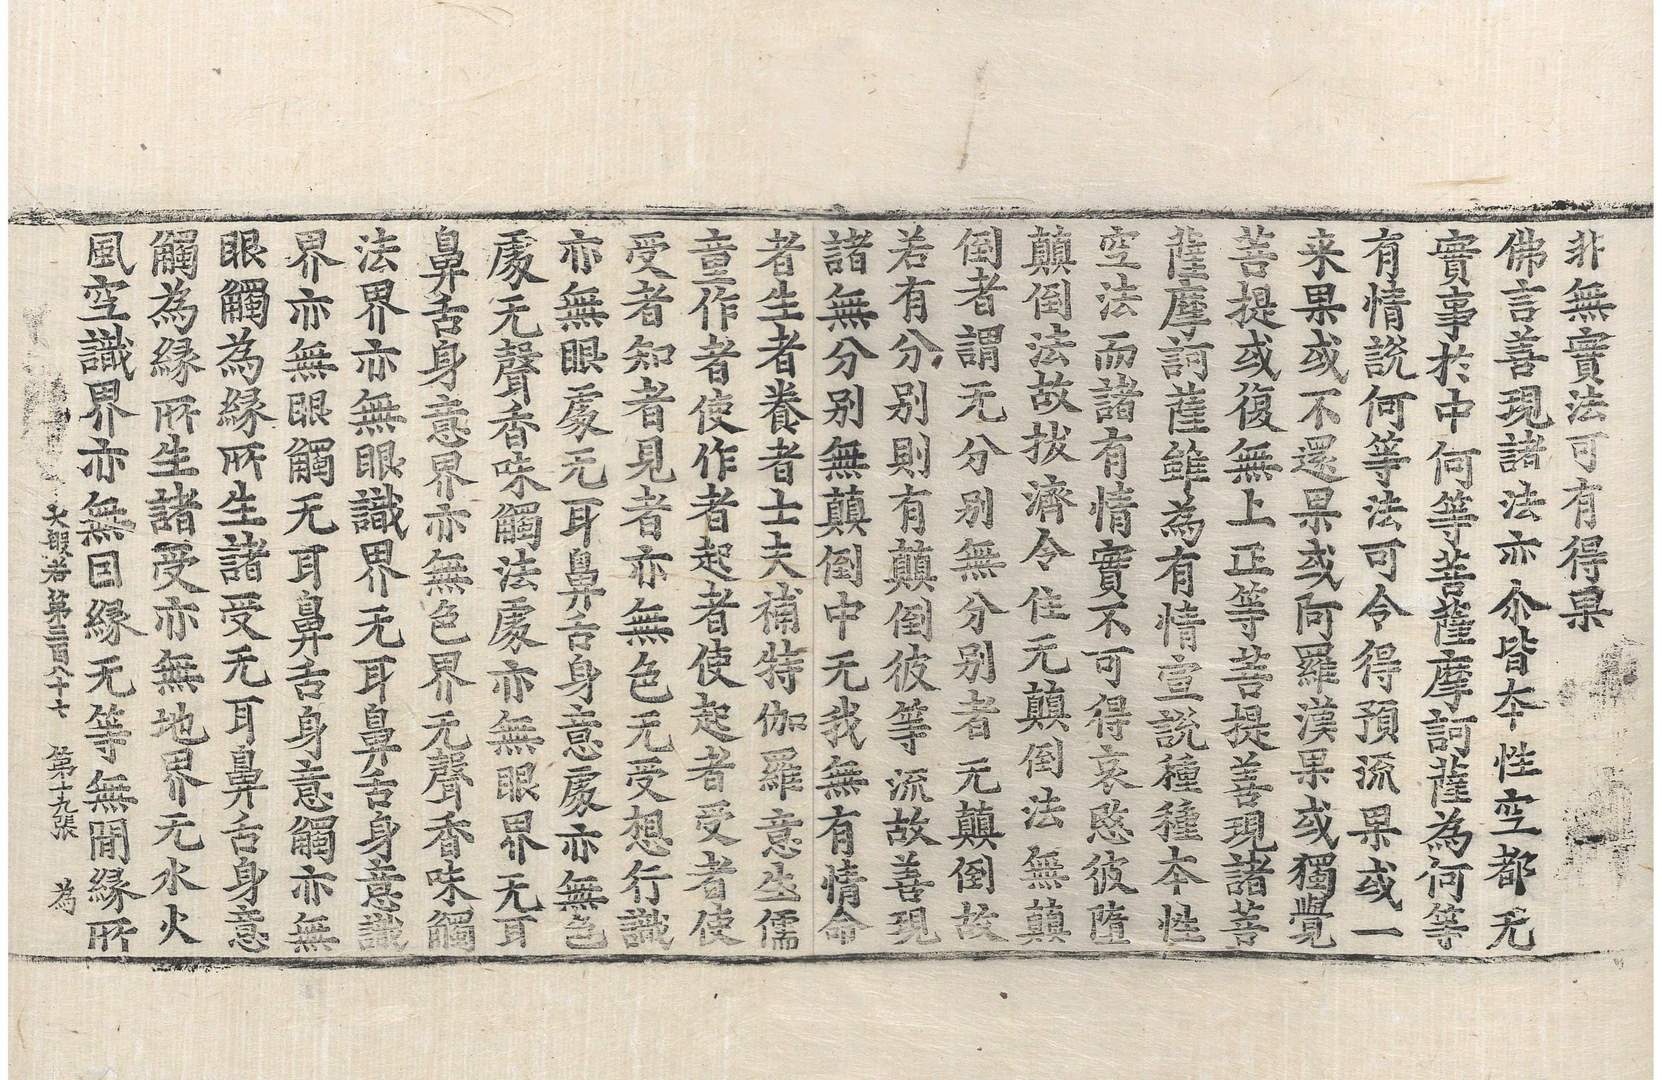 非無實法可有得果
佛言善現諸法亦尒皆夲性空都无
實事於中何等菩薩摩訶薩為何等
有情說何等法可令得預流果或一
来果或不還果或阿羅漢果或獨覺
菩提或復無上正等菩提善現諸菩
薩摩訶薩雖為有情宣說種種夲性
空法而諸有情實不可得哀愍彼墮
顛倒法故拔濟令住无顛倒法無顛
倒者謂无分別無分別者无顛倒故
若有分別則有顛倒彼等流故善現
諸無分別無顛倒中无我無有情命
者生者養者士夫補特伽羅意生儒
童作者使作者起者使起者受者使
受者知者見者亦無色无受想行識
亦無眼處无耳鼻舌身意處亦無色
處无聲香味觸法處亦無眼界无耳
鼻舌身意界亦無色界无聲香味觸
法界亦無眼識界无耳鼻舌身意識
界亦無眼觸无耳鼻舌身意觸亦無
眼觸為緣所生諸受无耳鼻舌身意
觸為緣所生諸受亦無地界无水火
風空識界亦無因緣无等無間緣所
大般若第三百八十七 第十九張 為